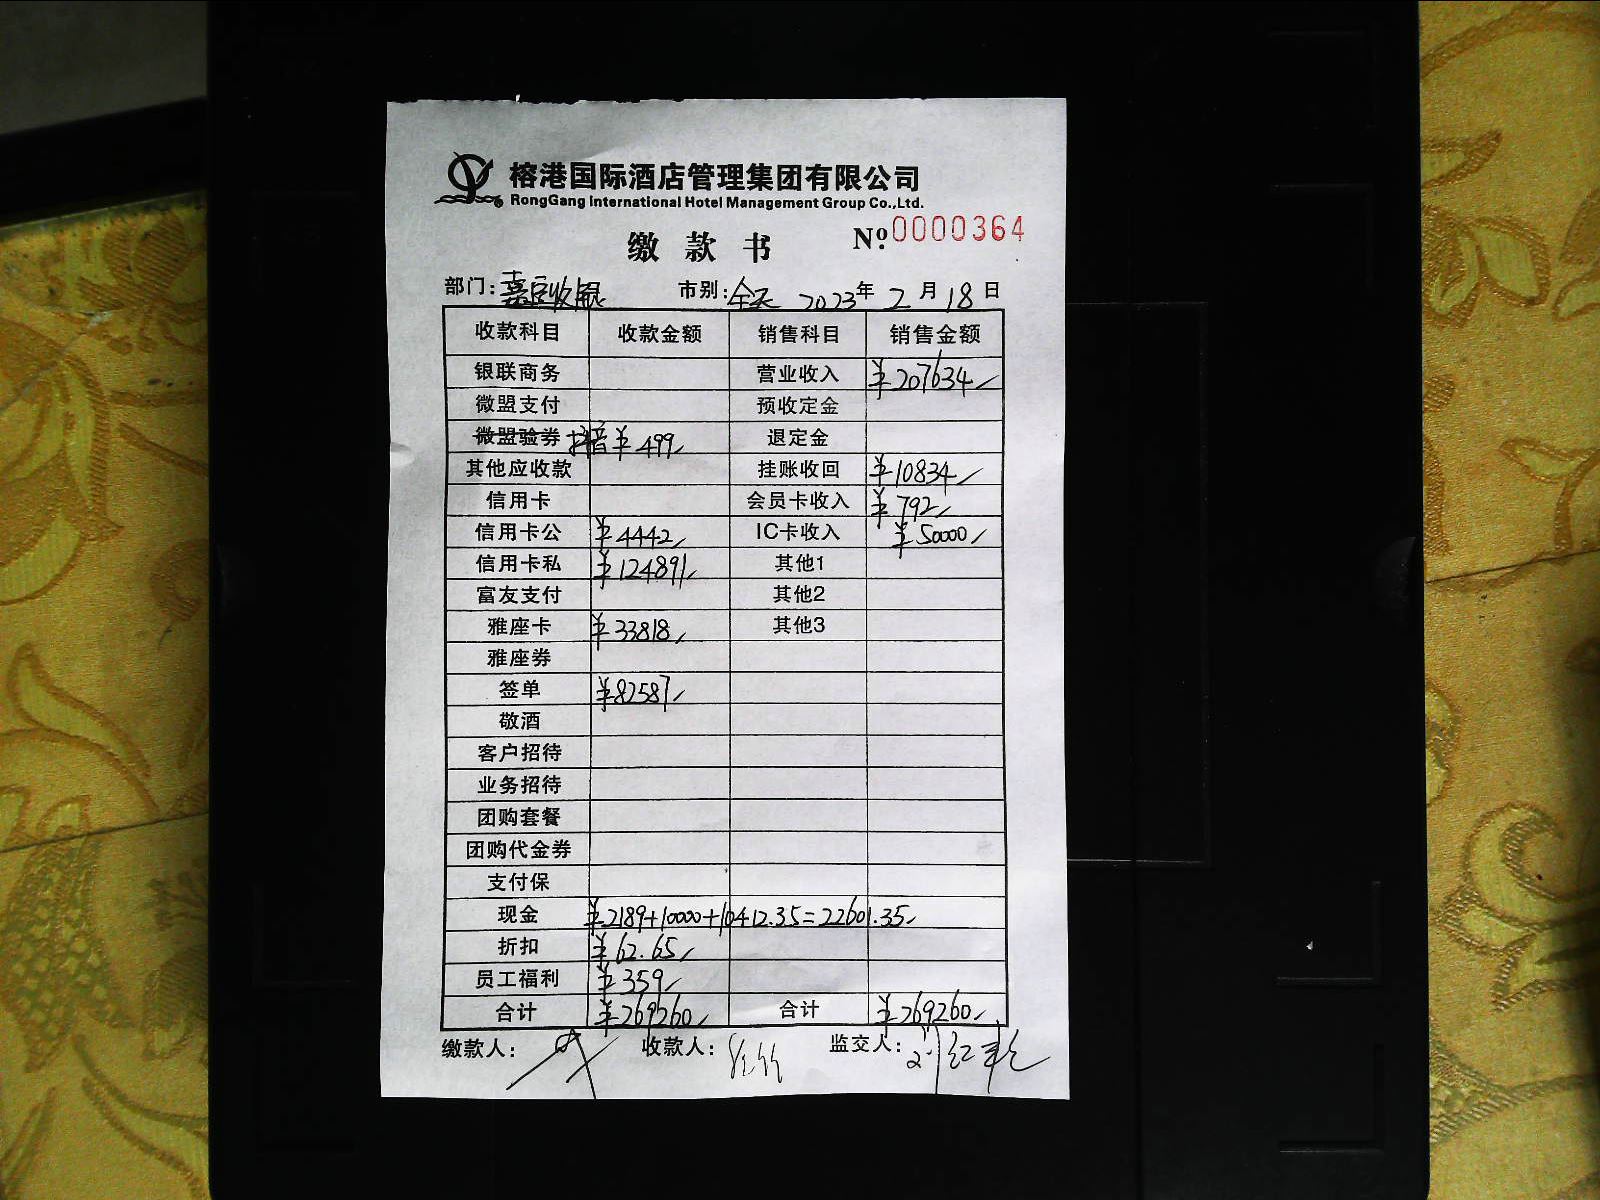 榕港国际酒店管理集团有限公司
RongGang International Hotel Management Group Co.,Ltd.
缴款书 Nº 0000364
部门: 嘉宴收银 市别: 全天 2023年 2月 18日
收款科目 收款金额 销售科目 销售金额
银联商务 营业收入 ¥207634
微盟支付 预收定金
微盟验券 抖音 ¥499 退定金
其他应收款 挂账收回 ¥10834
信用卡 会员卡收入 ¥792
信用卡公 ¥4442 IC卡收入 ¥50000
信用卡私 ¥124891 其他1
富友支付 其他2
雅座卡 ¥33818 其他3
雅座券
签单 ¥82587
敬酒
客户招待
业务招待
团购套餐
团购代金券
支付保
现金 ¥2189+10000+10412.35=22601.35
折扣 ¥62.65
员工福利 ¥359
合计 ¥269260 合计 ¥269260
缴款人: 收款人: 监交人: